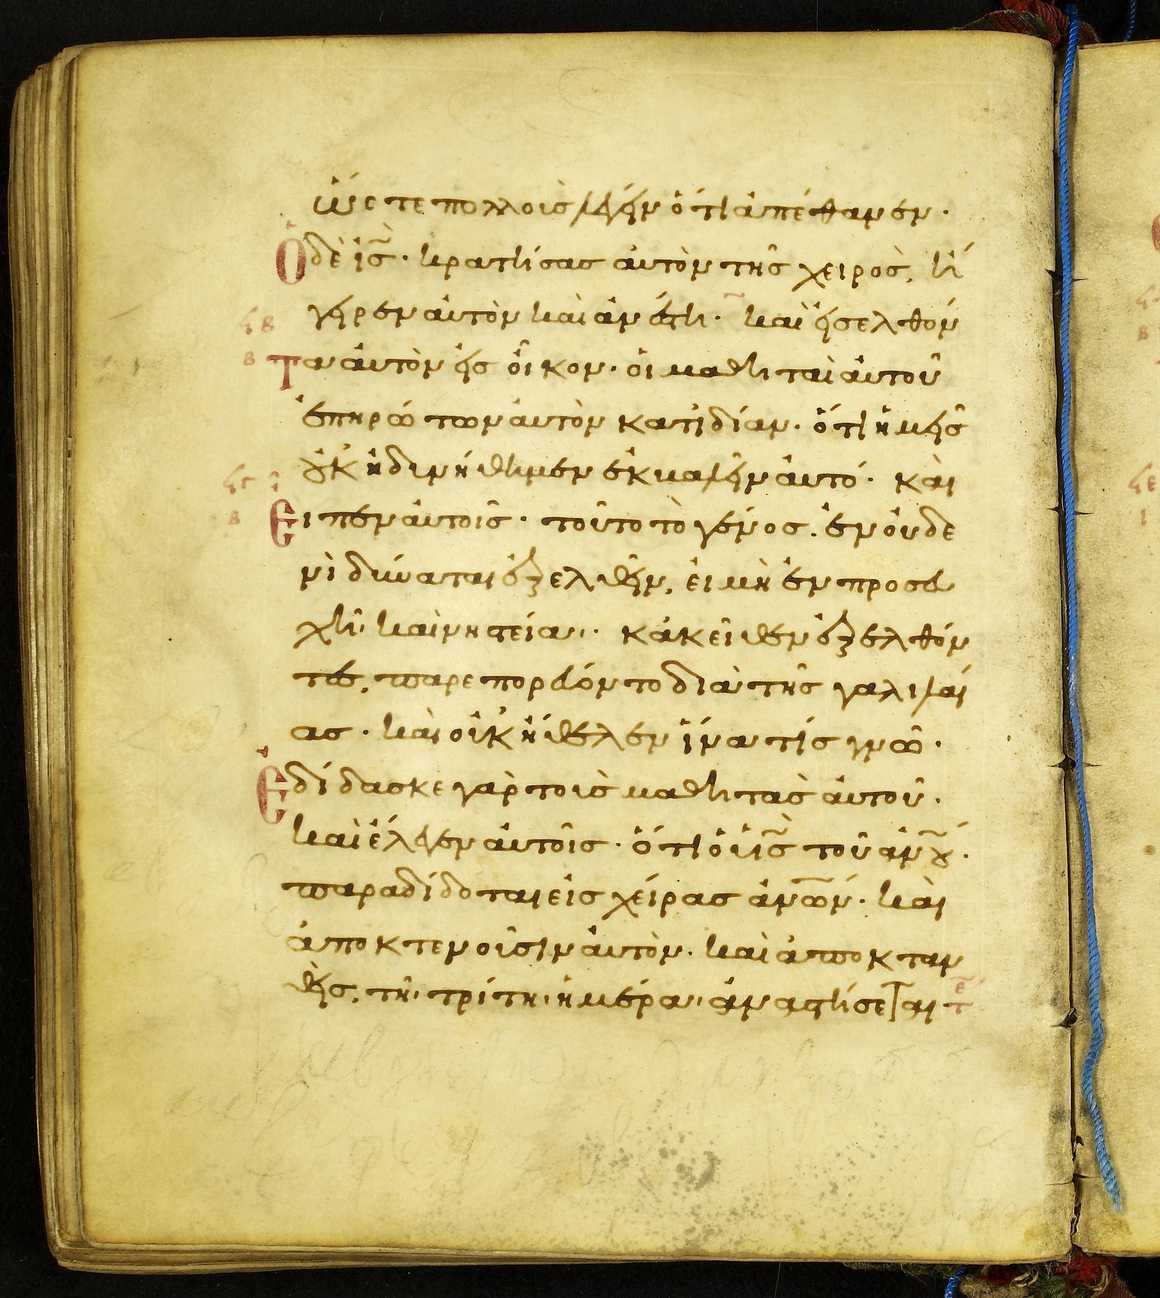 ὥς τε πολλοὺς λέγειν ὅτι ἀπέθανεν·
Ὁ δὲ ι̅ς̅· κρατήσας αὐτὸν τῆς χειρὸς, ἤ
γειρεν αὐτὸν καὶ ἀνέστη· καὶ εἰσελθόν
ϟβ
β Τα αὐτὸν εἰς οἶκον· οἱ μαθηταὶ αὐτοῦ
ἐπηρώτων αὐτὸν κατιδίαν· ὅτι ἡμεῖς
οὐκ ἠδυνήθημεν ἐκβαλεῖν αὐτό· καὶ
Εἶπεν αὐτοῖς· τοῦτο τὸ γένος· ἐν οὐδε
νὶ δύναται ἐξελθεῖν, εἰ μὴ ἐν προσευ
χῆ· καὶ νηστεία· κἀκεῖθεν ἐξελθόν
τες, παρεπορεύοντο διὰ τῆς γαλιλαί
ας· καὶ οὐκ ἤθελεν ἵνα τίς γνῶ·
Ἐδίδασκε γὰρ τοὺς μαθητὰς αὐτοῦ·
καὶ ἔλεγεν αὐτοῖς· ὅτι ὁ υ̅ς̅ τοῦ α̅ν̅ο̅υ̅·
παραδίδοται εἰς χείρας α̅ν̅ω̅ν̅· καὶ
ἀποκτενοῦσιν αὐτὸν· καὶ ἀποκταν
θεὶς, τῆ τρίτη ἡμέρα ἀναστήσεται